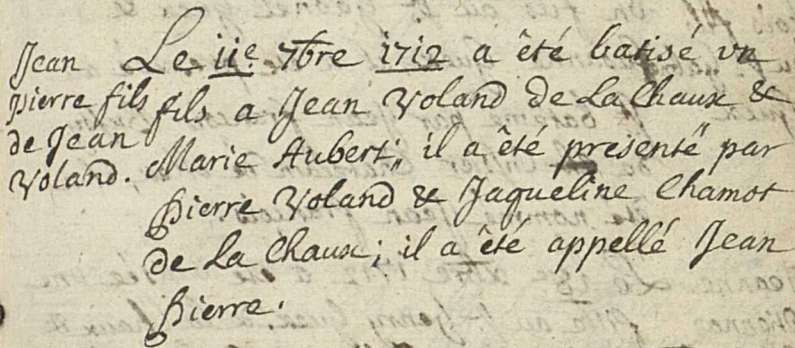 Jean
pierre fils
de Jean
Voland.
Le 11e. 7bre 1712 a êté batisé vn
fils a Jean Voland de La Chaux &
Marie Aubert; il a êté presenté par
Pierre Voland & Jaqueline Chamot
de La Chaux; il a êté appellé Jean
Pierre.